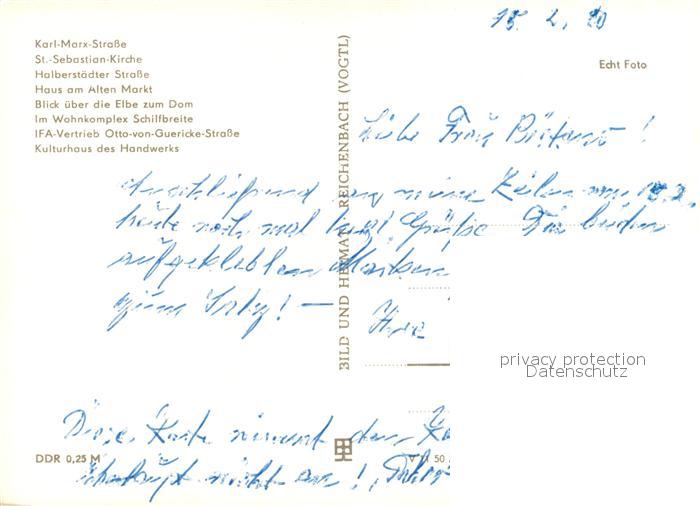 15. 2. 80
Karl-Marx-Straße
St.-Sebastian-Kirche
Halberstädter Straße
Haus am Alten Markt
Blick über die Elbe zum Dom
Im Wohnkomplex Schilfbreite
IFA-Vertrieb Otto-von-Guericke-Straße
Kulturhaus des Handwerks
BILD UND HEIMAT REICHENBACH (VOGTL)
Echt Foto
Liebe Frau !
Anschließend an meine Zeilen vom
heute noch mal Grüße Die beiden
aufgeklebten Marken
zum !
Diese Karte nimmt den
überhaupt nicht an !
privacy protection
Datenschutz
DDR 0,25 M
V 11 50